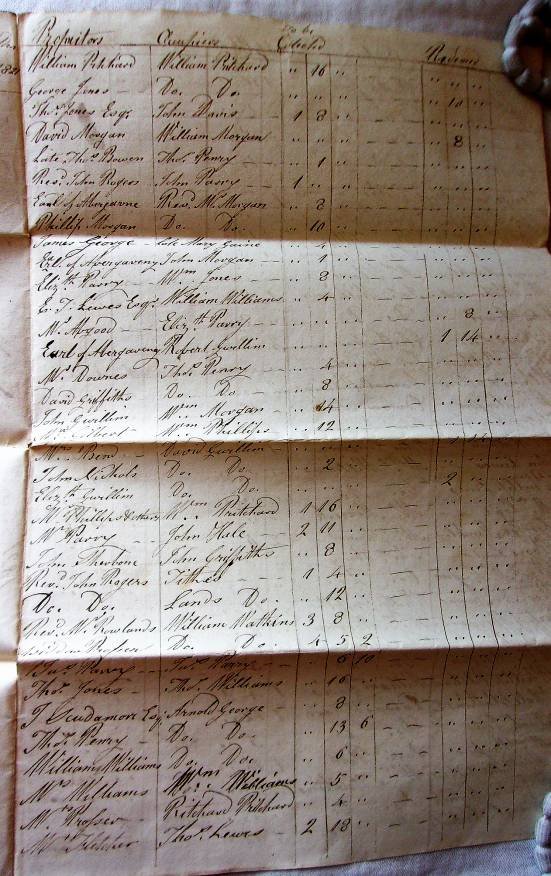 Proprietors Occupiers To be Collected Redeemed
William Pritchard William Pritchard „ 16 „ „ „ „
George Jones Do. Do. „ „ „ „ 10 „
Thos. Jones Esqr. John Davis 1 8 „ „ „ „
David Morgan William Morgan „ „ „ „ 8 „
Late Thos. Bowen Thos. Penry „ 1 „ „ „ „
Revd. John Rogers John Parry 1 „ „ „ „ „
Earl of Abergavenny Revd. Mr. Morgan „ 8 „ „ „ „
Phillip Morgan Do. Do. „ 10 „ „ „ „
James George late Mary „ 4 „ „ „ „
Erl. of Abergaveny John Morgan „ 1 „ „ „ „
Elizth. Parry Wm. Jones „ 8 „ „ „ „
E. T. Lewes Esqr. William Williams „ 4 „ „ „ „
Mr. Elizth. Parry „ „ „ „ 8 „
Earl of Abergaveny Robert Gwillim „ „ „ 1 14 „
Mr. Downes Thos. Penry „ 4 „ „ „ „
David Griffiths Do. Do. „ 8 „ „ „ „
John Gwillim Wm. Morgan „ 14 „ „ „ „
Wm. Phillips „ 12 „ „ „ „
Mrs. David Gwillim „ „ „ „ 14
John Nichols Do. Do. „ 2 „ „ „ „
Elizth. Gwillim Do. Do. „ „ „ 2 „ „
Mr. Phillips & others Wm. Pritchard 1 16 „ „ „ „
Mr. Parry John Hale 2 11 „ „ „ „
John John Griffiths „ 8 „ „ „ „
Revd. John Rogers Tithes 1 4 „ „ „ „
Do. Do. Lands Do. „ 12 „ „ „ „
Revd. Mr. Rowlands William Watkins 3 8 „ „ „ „
Prosser Do. Do. 4 5 2 „ „ „
Jas. Parry Jas. Parry „ 6 10 „ „ „
Thos. Jones Thos. Williams „ 16 „ „ „ „
J Scudamore Esq. Arnold George „ 8 „ „ „ „
Thos. Penry Do. Do. „ 13 6 „ „ „
William Williams Do. Do. „ 6 „ „ „ „
Mrs. Williams Wm. Williams „ 5 „ „ „ „
Mr. Prosser Pritchard Pritchard „ 4 „ „ „ „
Mr. Fletcher Thos. Lewes 2 18 „ „ „ „